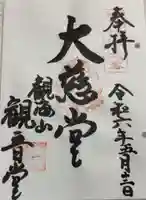 奉拝
令和六年五月三日
大慈堂
観海山
観音堂